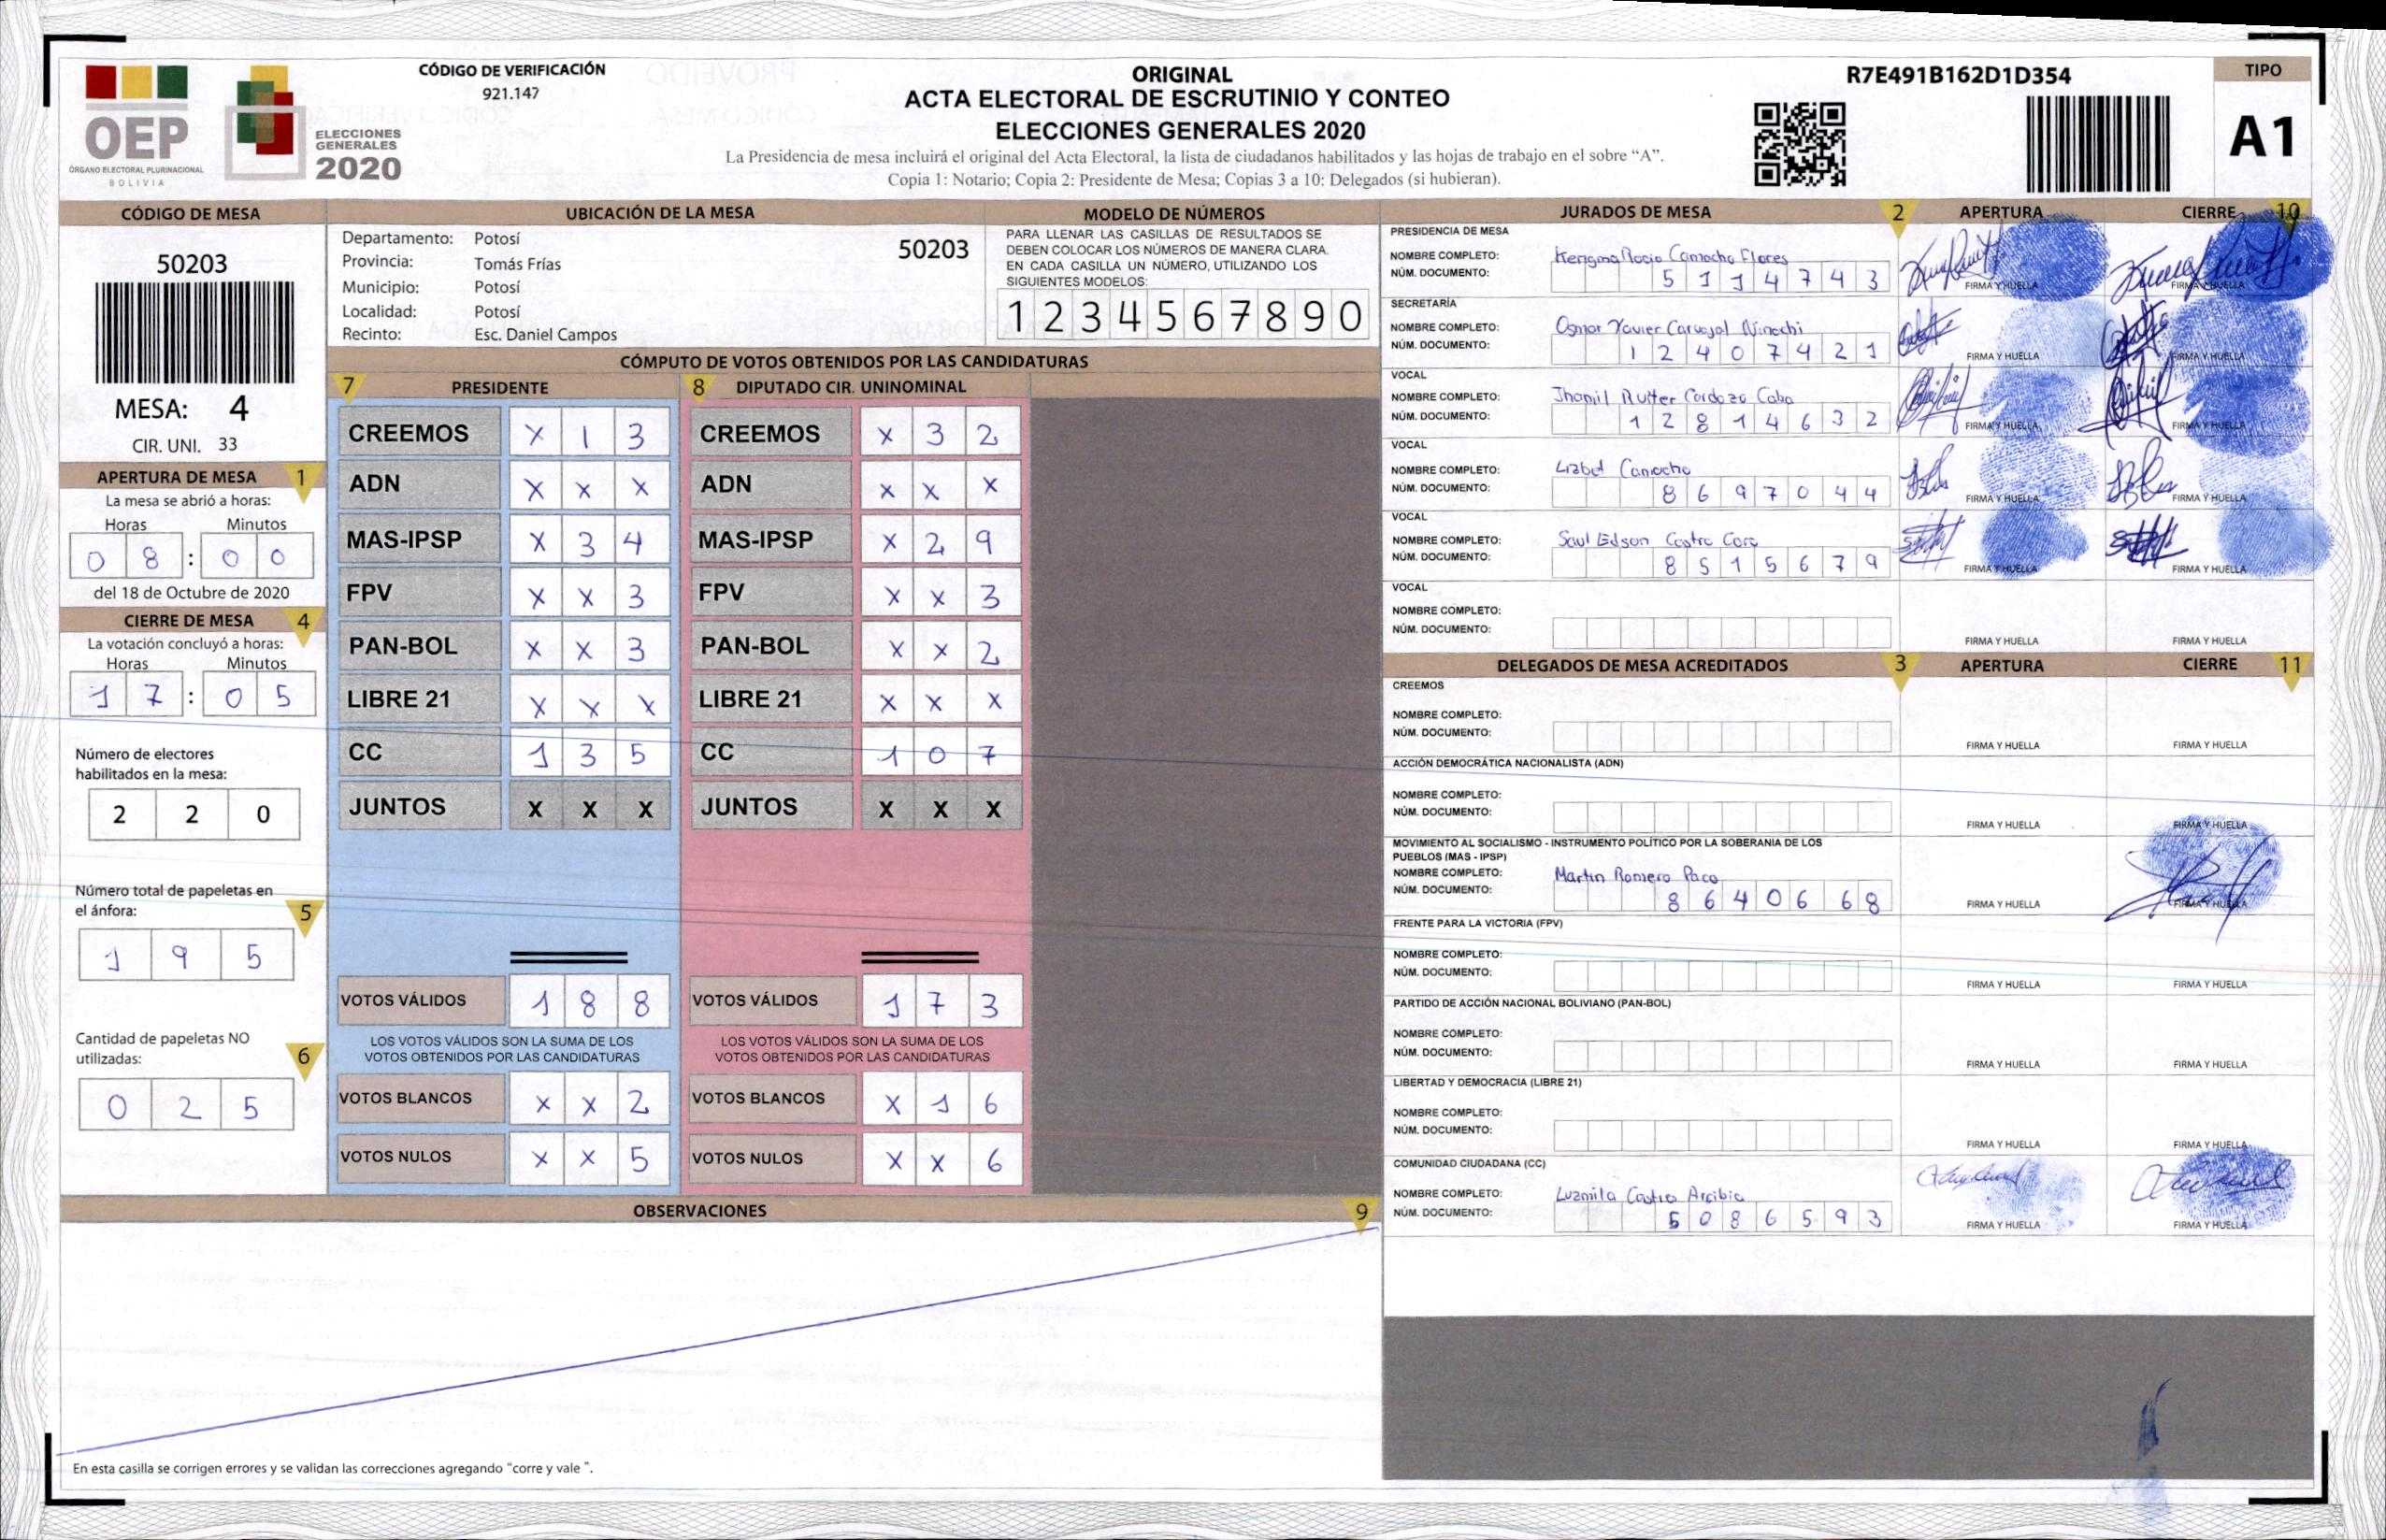 OEP
ÓRGANO ELECTORAL PLURINACIONAL
BOLIVIA
ELECCIONES
GENERALES
2020
CÓDIGO DE VERIFICACIÓN
921.147
ORIGINAL
ACTA ELECTORAL DE ESCRUTINIO Y CONTEO
ELECCIONES GENERALES 2020
La Presidencia de mesa incluirá el original del Acta Electoral, la lista de ciudadanos habilitados y las hojas de trabajo en el sobre “A”.
Copia 1: Notario; Copia 2: Presidente de Mesa; Copias 3 a 10: Delegados (si hubieran).
R7E491B162D1D354
TIPO
A1
CÓDIGO DE MESA
50203
MESA: 4
CIR. UNI. 33
APERTURA DE MESA 1
La mesa se abrió a horas:
Horas Minutos
0 8 : 0 0
del 18 de Octubre de 2020
CIERRE DE MESA 4
La votación concluyó a horas:
Horas Minutos
1 7 : 0 5
Número de electores
habilitados en la mesa:
2 2 0
Número total de papeletas en
el ánfora: 5
1 9 5
Cantidad de papeletas NO
utilizadas: 6
0 2 5
UBICACIÓN DE LA MESA
Departamento: Potosí
50203
Provincia: Tomás Frías
Municipio: Potosí
Localidad: Potosí
Recinto: Esc. Daniel Campos
MODELO DE NÚMEROS
PARA LLENAR LAS CASILLAS DE RESULTADOS SE
DEBEN COLOCAR LOS NÚMEROS DE MANERA CLARA.
EN CADA CASILLA UN NÚMERO, UTILIZANDO LOS
SIGUIENTES MODELOS:
1 2 3 4 5 6 7 8 9 0
CÓMPUTO DE VOTOS OBTENIDOS POR LAS CANDIDATURAS
7 PRESIDENTE 8 DIPUTADO CIR. UNINOMINAL
CREEMOS X 1 3 CREEMOS X 3 2
ADN X X X ADN X X X
MAS-IPSP X 3 4 MAS-IPSP X 2 9
FPV X X 3 FPV X X 3
PAN-BOL X X 3 PAN-BOL X X 2
LIBRE 21 X X X LIBRE 21 X X X
CC 1 3 5 CC 1 0 7
JUNTOS X X X JUNTOS X X X
VOTOS VÁLIDOS 1 8 8 VOTOS VÁLIDOS 1 7 3
LOS VOTOS VÁLIDOS SON LA SUMA DE LOS LOS VOTOS VÁLIDOS SON LA SUMA DE LOS
VOTOS OBTENIDOS POR LAS CANDIDATURAS VOTOS OBTENIDOS POR LAS CANDIDATURAS
VOTOS BLANCOS X X 2 VOTOS BLANCOS X 1 6
VOTOS NULOS X X 5 VOTOS NULOS X X 6
OBSERVACIONES 9
En esta casilla se corrigen errores y se validan las correcciones agregando “corre y vale ”.
JURADOS DE MESA 2 APERTURA CIERRE 10
PRESIDENCIA DE MESA
NOMBRE COMPLETO: Rocio Camacho Flores
NÚM. DOCUMENTO: 5 1 1 4 7 4 3 FIRMA Y HUELLA FIRMA Y HUELLA
SECRETARÍA
NOMBRE COMPLETO: Osmar Xavier Carvajal Ninachi
NÚM. DOCUMENTO: 1 2 4 0 7 4 2 1 FIRMA Y HUELLA FIRMA Y HUELLA
VOCAL
NOMBRE COMPLETO: Jhamil Rutter Cardozo Caba
NÚM. DOCUMENTO: 1 2 8 1 4 6 3 2 FIRMA Y HUELLA FIRMA Y HUELLA
VOCAL
NOMBRE COMPLETO: Lizbel Camacho
NÚM. DOCUMENTO: 8 6 9 7 0 4 4 FIRMA Y HUELLA FIRMA Y HUELLA
VOCAL
NOMBRE COMPLETO: Saul Edson Castro Coro
NÚM. DOCUMENTO: 8 5 1 5 6 7 9 FIRMA Y HUELLA FIRMA Y HUELLA
VOCAL
NOMBRE COMPLETO:
NÚM. DOCUMENTO: FIRMA Y HUELLA FIRMA Y HUELLA
DELEGADOS DE MESA ACREDITADOS 3 APERTURA CIERRE 11
CREEMOS
NOMBRE COMPLETO:
NÚM. DOCUMENTO: FIRMA Y HUELLA FIRMA Y HUELLA
ACCIÓN DEMOCRÁTICA NACIONALISTA (ADN)
NOMBRE COMPLETO:
NÚM. DOCUMENTO: FIRMA Y HUELLA FIRMA Y HUELLA
MOVIMIENTO AL SOCIALISMO - INSTRUMENTO POLÍTICO POR LA SOBERANIA DE LOS
PUEBLOS (MAS - IPSP)
NOMBRE COMPLETO: Martin Romero Paco
NÚM. DOCUMENTO: 8 6 4 0 6 6 8 FIRMA Y HUELLA FIRMA Y HUELLA
FRENTE PARA LA VICTORIA (FPV)
NOMBRE COMPLETO:
NÚM. DOCUMENTO: FIRMA Y HUELLA FIRMA Y HUELLA
PARTIDO DE ACCIÓN NACIONAL BOLIVIANO (PAN-BOL)
NOMBRE COMPLETO:
NÚM. DOCUMENTO: FIRMA Y HUELLA FIRMA Y HUELLA
LIBERTAD Y DEMOCRACIA (LIBRE 21)
NOMBRE COMPLETO:
NÚM. DOCUMENTO: FIRMA Y HUELLA FIRMA Y HUELLA
COMUNIDAD CIUDADANA (CC)
NOMBRE COMPLETO: Luzmila Castro Arcibia
NÚM. DOCUMENTO: 5 0 8 6 5 9 3 FIRMA Y HUELLA FIRMA Y HUELLA